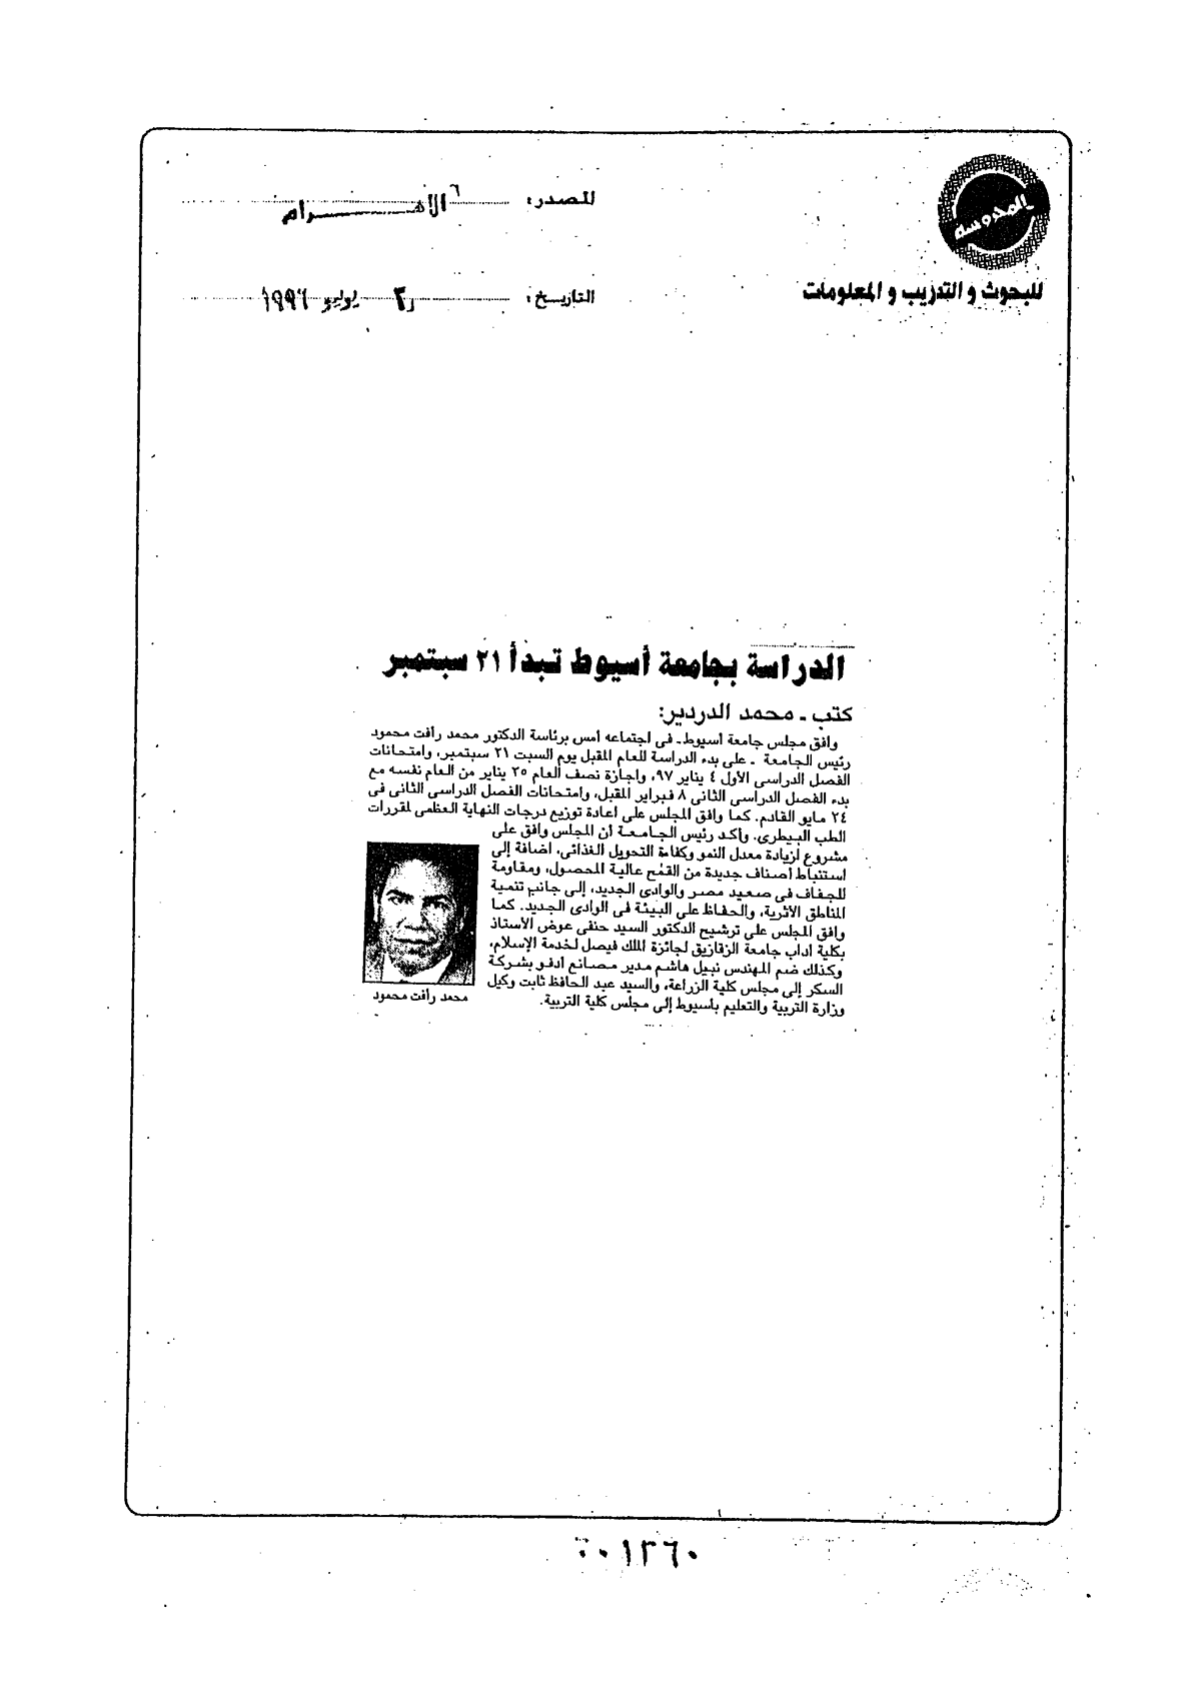 المحروسة
للبحوث و التدريب و المعلومات
المصدر: الأهـــــرام
التاريخ: يوليو ١٩٩٦
الدراسة بجامعة أسيوط تبدأ ٢١ سبتمبر
كتب ـ محمد الدردير:
وافق مجلس جامعة أسيوط ـ فى اجتماعه أمس برئاسة الدكتور محمد رافت محمود
رئيس الجامعة ـ على بدء الدراسة للعام المقبل يوم السبت ٢١ سبتمبر، وامتحانات
الفصل الدراسى الأول ٤ يناير ٩٧، واجازة نصف العام ٢٥ يناير من العام نفسه مع
بدء الفصل الدراسى الثانى ٨ فبراير المقبل، وامتحانات الفصل الدراسى الثانى فى
٢٤ مايو القادم. كما وافق المجلس على اعادة توزيع درجات النهاية العظمى لمقررات
الطب البيطرى. وأكد رئيس الجامعة أن المجلس وافق على
مشروع لزيادة معدل النمو وكفاءة التحويل الغذائى، اضافة إلى
استنباط أصناف جديدة من القمح عالية المحصول، ومقاومة
للجفاف فى صعيد مصر والوادى الجديد، إلى جانب تنمية
المناطق الأثرية، والحفاظ على البيئة فى الوادى الجديد. كما
وافق المجلس على ترشيح الدكتور السيد حنفى عوض الأستاذ
بكلية اداب جامعة الزقازيق لجائزة الملك فيصل لخدمة الإسلام،
وكذلك ضم المهندس نبيل هاشم مدير مصانع ادفو بشركة
السكر إلى مجلس كلية الزراعة، والسيد عبد الحافظ ثابت وكيل
وزارة التربية والتعليم باسيوط إلى مجلس كلية التربية.
محمد رافت محمود